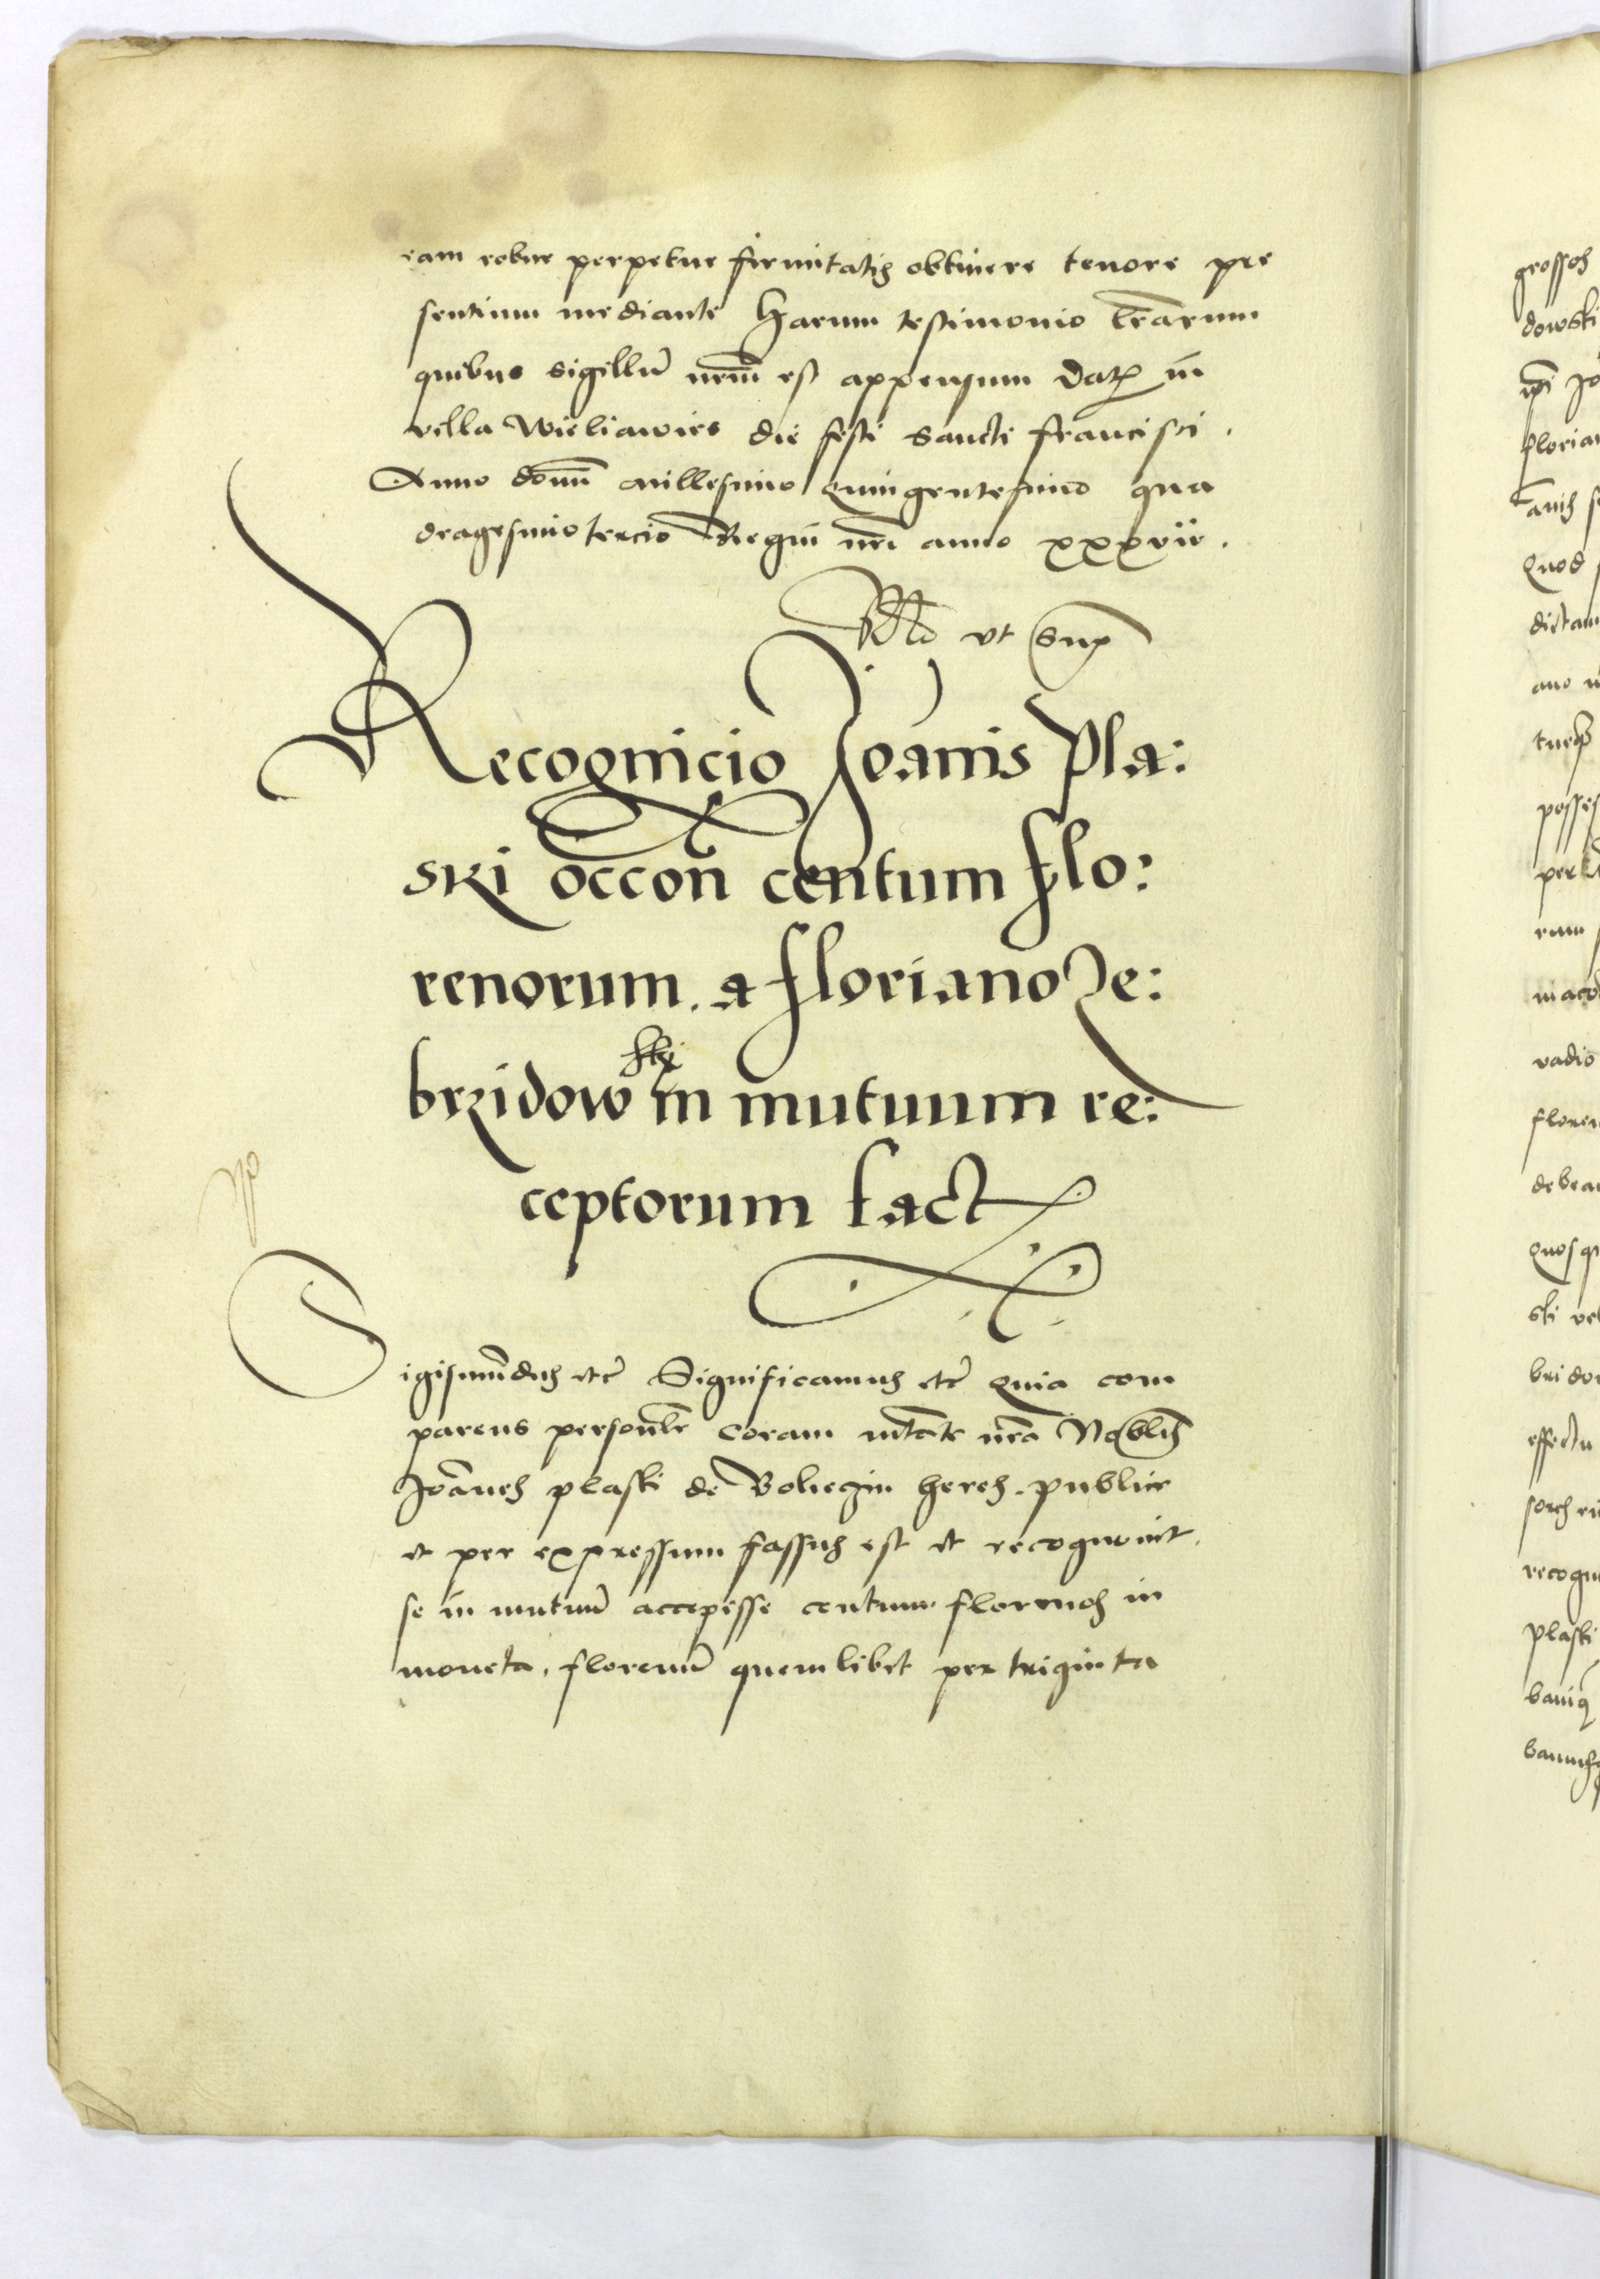 eam robur perpetue firmitatis obtinere tenore pre
sentium mediante harum testimonio lrarum
quibus sigillu nrm est appensum Dat in
villa Wieliawies die festi sancti francisci.
Anno domi millesimo Quingentesimo qua
dragesimo tercio Regni nri anno xxxvii.
ut sup
Recognicio Joanis Pla:
ski occon centum flo:
renorum. a floriano Ze:
brzidowsky in mutuum re:
ceptorum fact
Sigismundus etc Significamus etc Quia com
parens personlr coram mtate nra Noblis
Joanes plaski de heres. publice
et per expressum fassus est et recognovit.
se in mutuu accepisse centum florenos in
moneta. florenu quemlibet per triginta
grossos
dowski
ipi Jo
floria
Quod
dictam
possess
vadio
floren
debea
Quosq
ski vel
bridow
effectu
recogn
plaski